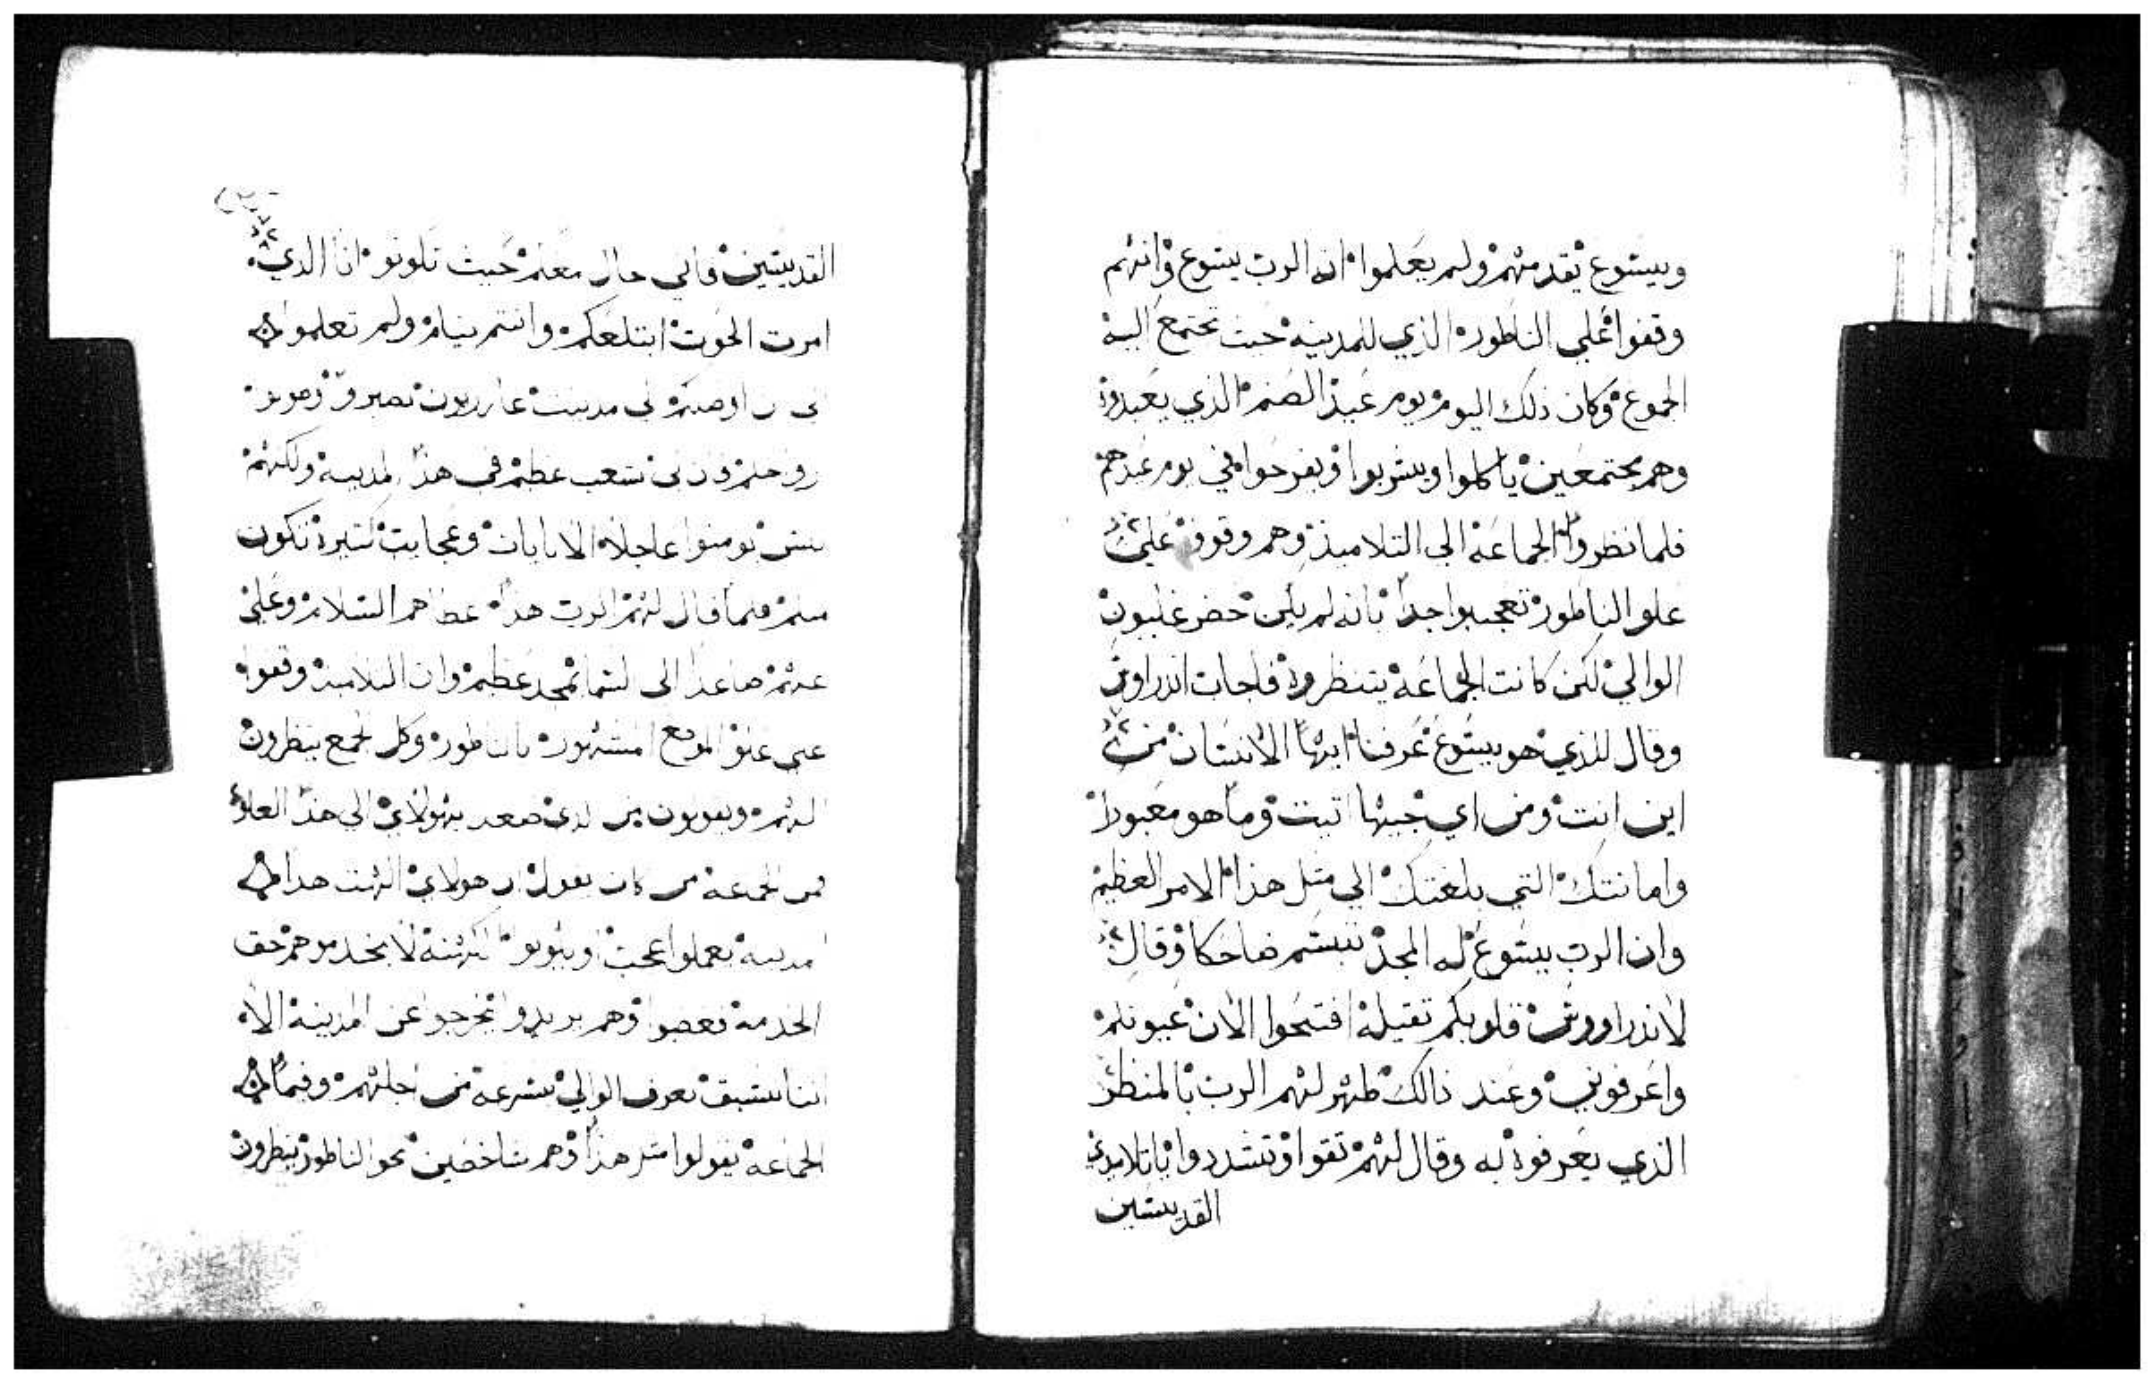 وييسوع يقدمهم ولم يعلموا انه الرب يسوع وانهم
وقفوا علي الناطور الذي للمدينه حيث تجتمع اليه
الجموع وكان ذلك اليوم يوم عيد الصنم الذي يعبدوه
وهم مجتمعين ياكلوا ويشربوا ويفرحوا في يوم عيدهم
فلما نظروا الجماعه الي التلاميذ وهم وقوف علي
علو الناطور تعجبوا جدا بانه لم يكن حضر غليون
الوالي لكن كانت الجماعه ينتظروه فاجاب اندراوس
وقال للذي هو ييسوع عرفنا ايها الانسان من
اين انت ومن اي جيها اتيت وما هو معبودك
وامانتك التي بلغتك الي متل هذا الامر العظيم
وان الرب ييسوع له المجد تبسم ضاحكا وقال
لاندراووس قلوبكم تقيله افتحوا الان عيونكم
واعرفوني وعند ذالك ظهر لهم الرب بالمنظر
الذي يعرفوه به وقال لهم تقوا وتشددوا ياتلاميذي
القديسين
القديسين فاني حال معكم حيث تكونو انا الذي
امرت الحوت ابتلعكم وانتم نيام ولم تعلموا
الي ان اوصلكم الي مدينت
في هذه المدينه ولكنهم
ليس يومنوا عاجلا الا بايات وعجايب كتيرة تكون
منكم فلما قال لهم الرب هذا اعطاهم السلام وعلي
عنهم صاعدا الي السما بمجد عظيم وان التلاميذ وقفوا
علي علو الموضع المشهور بالناطور وكل الجمع ينظرون
اليهم ويقولون من الذي صعد بهولاي الي هذا العلو
فمن الجماعه من كان يقول ان هولاي الهت هذا
المدينه يعملوا عجب
الخدمه فغضبوا وهم يريدوا يخرجوا عن المدينه الا
اننا نسبق نعرف الوالي بسرعه من اجلهم وفيما
الجماعه يقولوا متل هذا وهم شاخصين نحو الناطور ينظرون